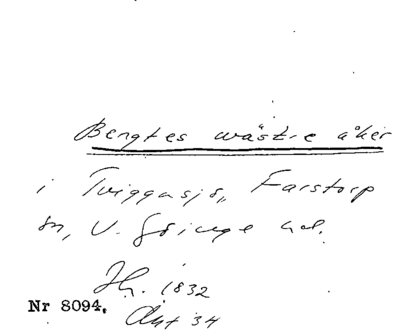 Bengtes wästre åker
i Tviggasjö, Farstorp
sn, V. Göinge hd.
Jh. 1832
Nr 8094. Akt 34